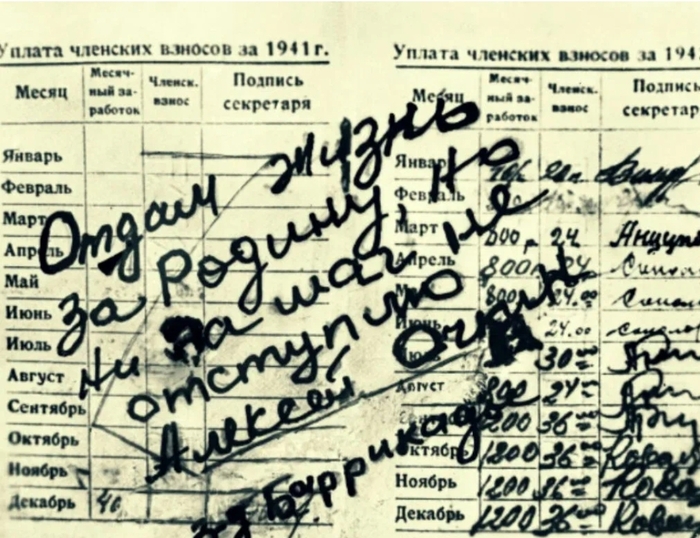 Уплата членских взносов за 1941 г.
Месяц
Месяч-
ный за-
работок
Членск.
взнос
Подпись
секретаря
Январь
Февраль
Март
Апрель
Май
Июнь
Июль
Август
Сентябрь
Октябрь
Ноябрь
Декабрь 40
Уплата членских взносов за 194
Месяц
Месяч-
ный за-
работок
Членск.
взнос
Подпись
секретар
Январ
Февраль
Март 24
Апрель 800
800 24.00
24.00
Июль 30
Август 800 24
1200 36
Октябр 1200 36
Ноябрь 1200 36
Декабрь 1200 36
Отдам жизнь
за Родину, но
ни на шаг не
отступлю
Алексей Очкин
з-д Баррикады